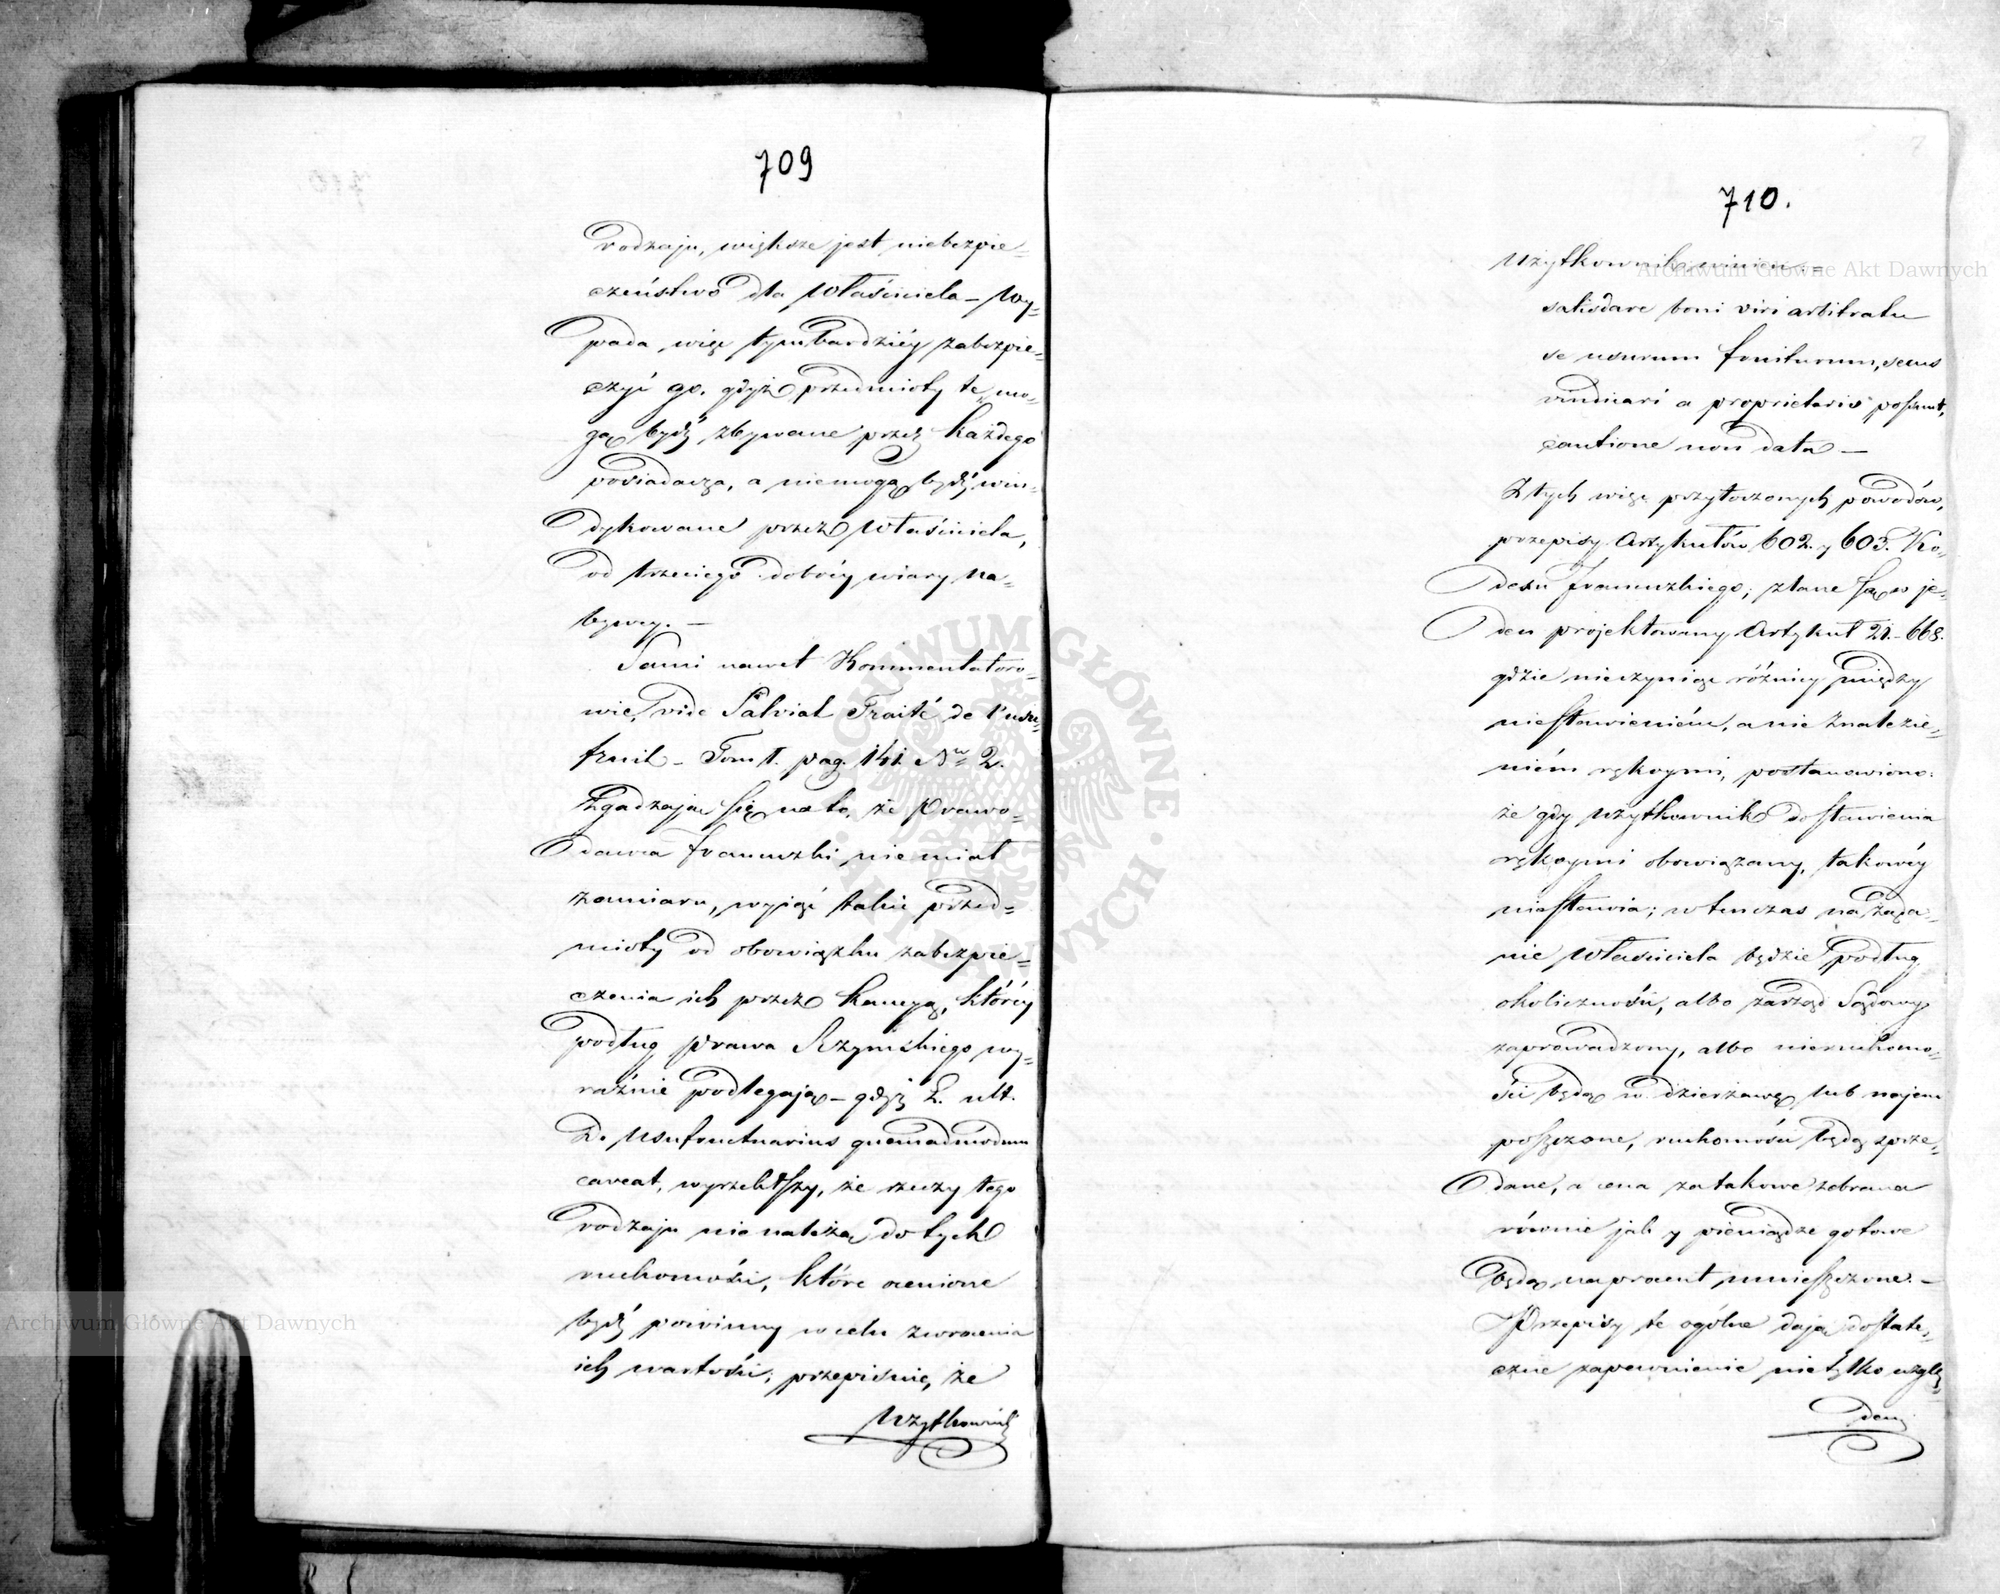 709
rodzaju, większe jest niebezpie=
czeństwo dla Właściciela – Wy=
pada więc tym bardziéy zabezpie=
czyć go, gdyż przedmioty te mo=
gą bydź zbywane przez każdego
posiadacza, a niemogą bydź win=
dykowane przez Właściciela,
od trzeciego dobréy wiary na=
bywcy. –
Sami nawet Kommentatoro=
wie, vide Salviat Traité de l'usu=
fruit – Tom 1. pag. 141. Nr 2.
Zgadzają się na to, że Prawo=
dawca francuzki nie miał
zamiaru, wyjąć takie przed=
mioty od obowiązku zabezpie=
czenia ich przez kaucyą, któréy
podług prawa Rzymskiego wy=
raźnie podlegają – gdyż L. ult.
D. Usufructuarius quemadmodum
caveat, wyrzekłszy, że rzeczy tego
rodzaju nie należą do tych
ruchomości, które ocenione
bydź powinny w celu zwrócenia
ich wartości, przepisuie, że
Użytkownik
710.
Użytkownik winien –
satisdare boni viri arbitratu
se usurum fruiturum, secus
vindicari a proprietario possunt,
cautione non data –
Z tych więc przytoczonych powodów,
przepisy Artykułów 602. y 603. Ko=
dexu francuzkiego, zlane są w je=
den projektowany Artykuł 21. – 668.
gdzie nieczyniąc różnicy między
niestawieniém, a nie znalezie=
niém rękoymi, postanowiono:
że gdy użytkownik do stawienia
rękoymi obowiązany, takowéy
niestawia; wtenczas na żąda=
nie Właściciela będzie podług
okoliczności, albo zarząd Sądowy
zaprowadzony, albo nieruchomo=
ści będą w dzierżawę lub najem
poszczone, ruchomości będą sprze=
dane, a cena za takowe zebrana
równie jak y pieniądze gotowe
będą na procent umieszczone. –
Przepisy te ogólne dają dostate=
czne zapewnienie nietylko wzglę=
dem
Archiwum Główne Akt Dawnych
Archiwum Główne Akt Dawnych
ARCHIWUM GŁÓWNE AKT DAWNYCH